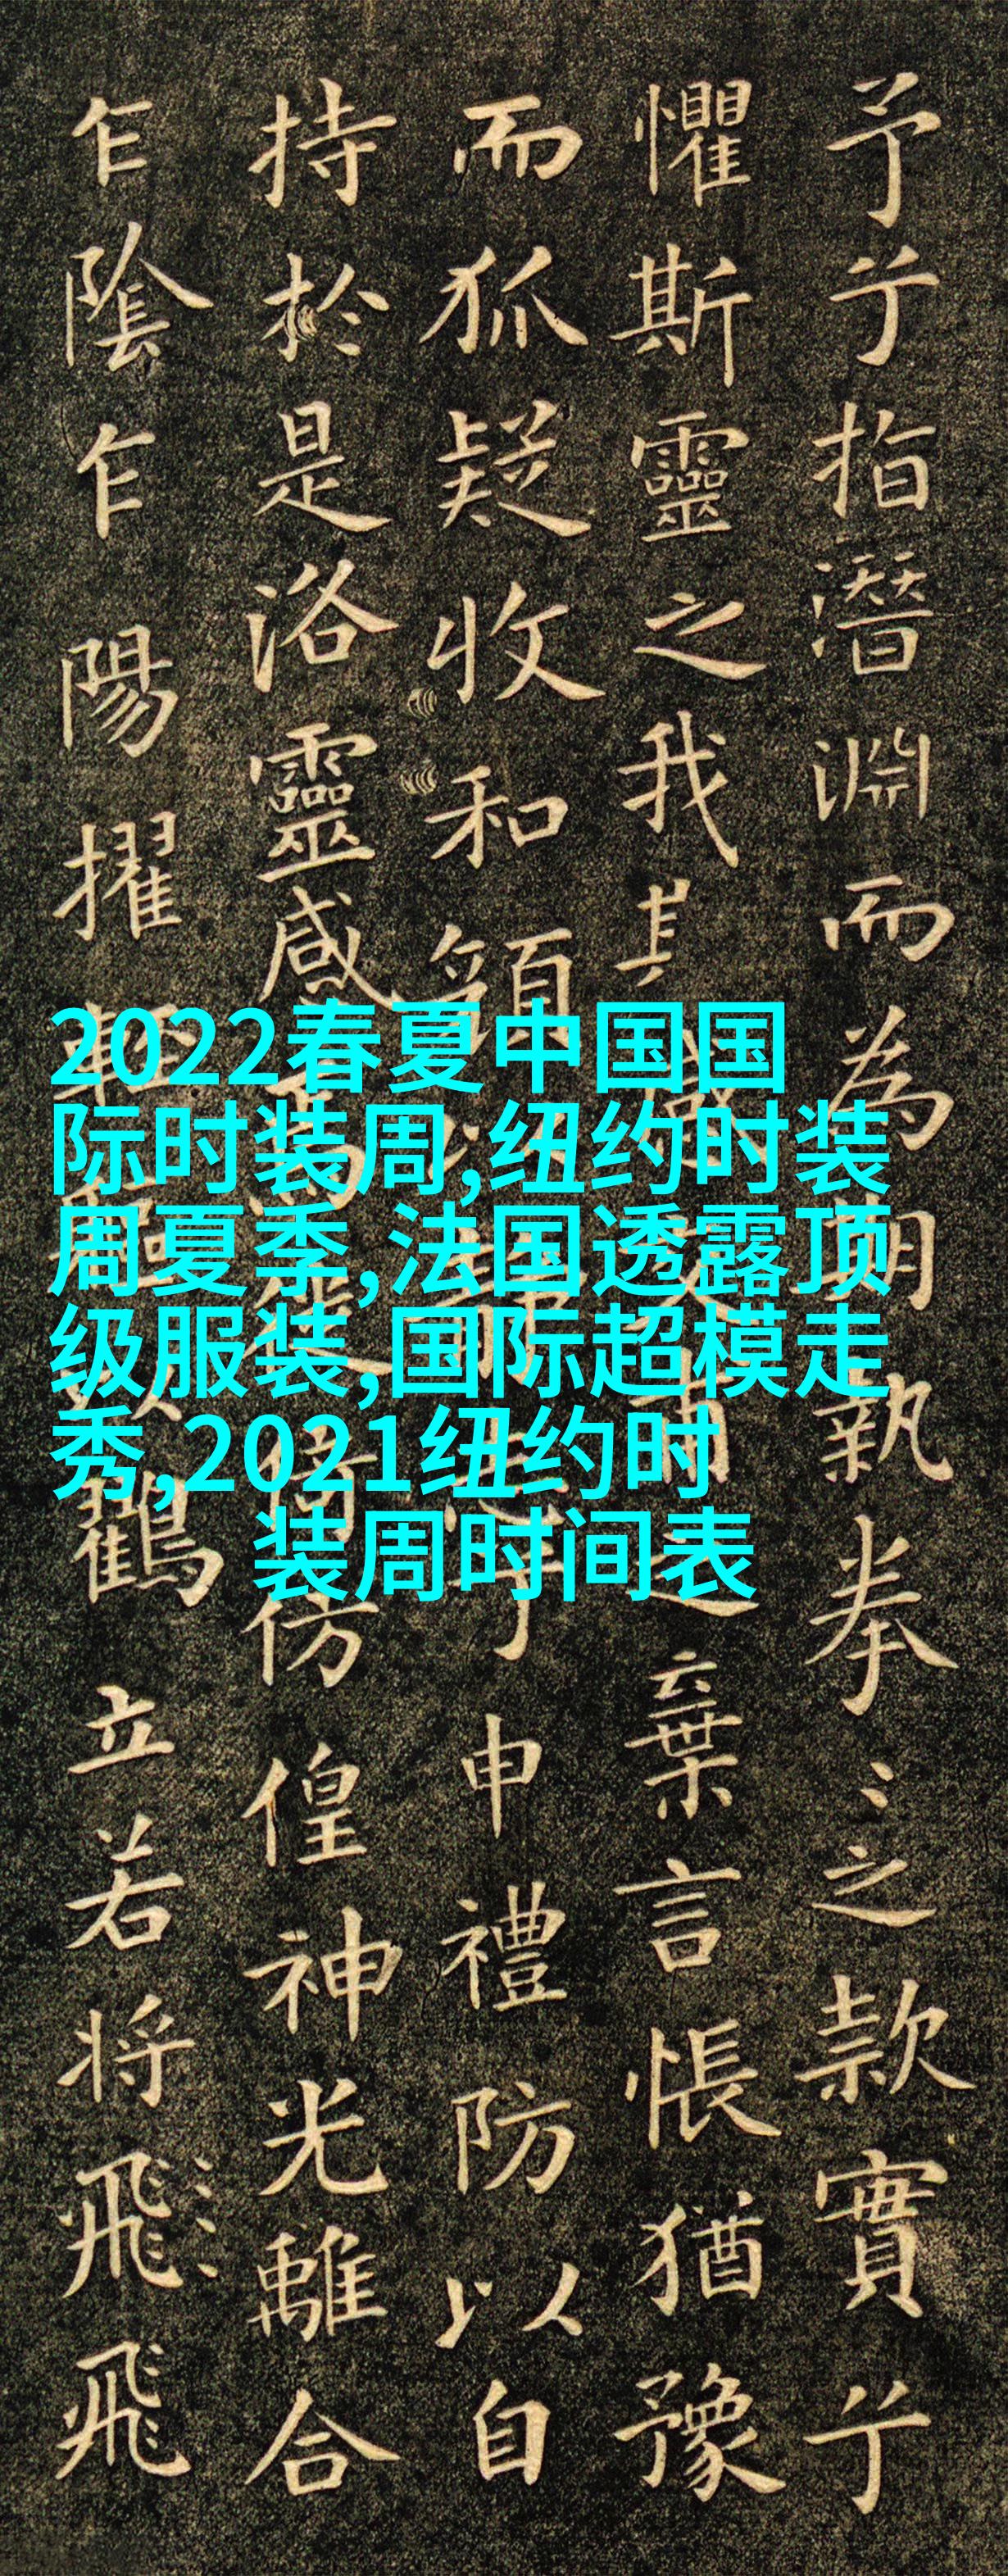 2022春夏中国国
际时装周,纽约时装
周夏季,法国透露顶
级服装,国际超模走
秀,2021纽约时
装周时间表
予兮指潛淵而為期執拳〻之款實兮
懼斯靈之我感交甫之棄言悵猶豫
而狐疑收和顏以靜志兮申禮防以自
持於是洛靈感焉徙倚仿偟神光離合
乍陰乍陽擢輕軀以鶴立若将飛飛